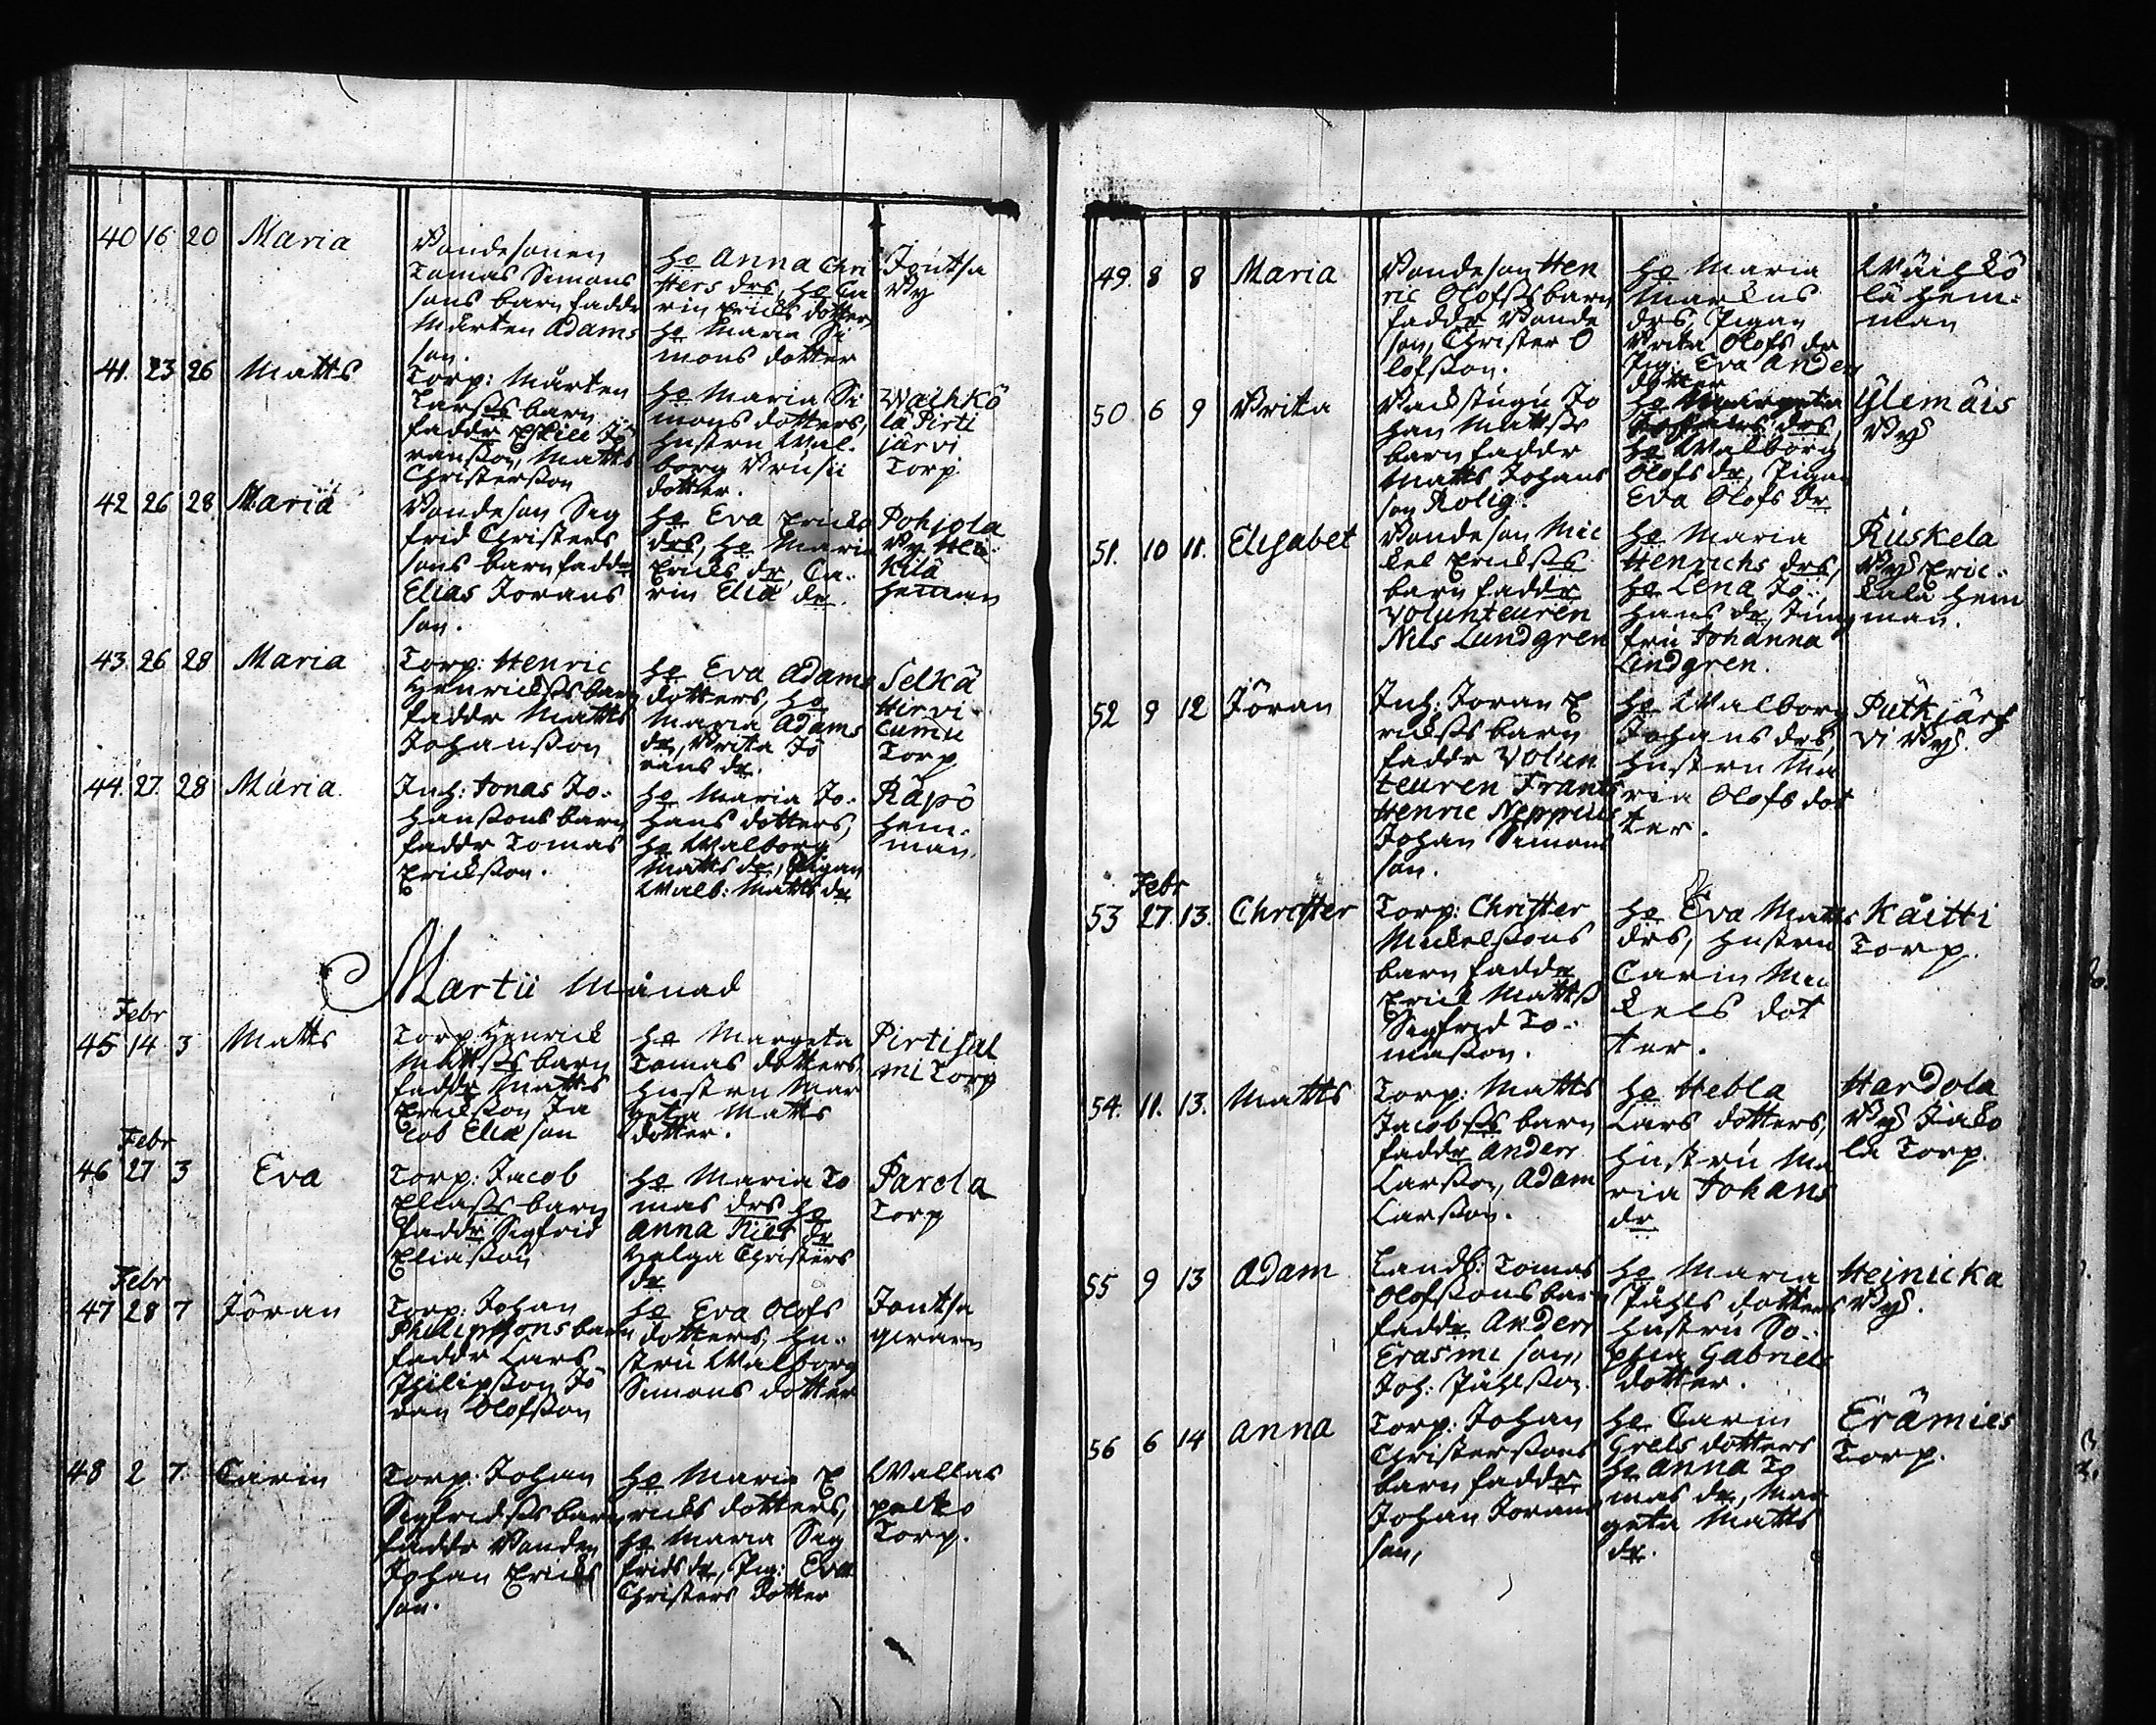 40 16 20 Maria
Bondesonen
Tomas Simons
sons barn faddr
Mårten Adams
son.
He Anna Chri
sters drs, He Ca
rin Ericks dotter,
He Maria Si
mons dotter
Joutsa
By
41. 23 26 Matts
Torp: Mårten
Larsss barn
faddr Eskill Jö
ransson, Matts
Christersson
He Maria Si
mons dotters,
Hustru Wal.
borg
dotter.
Waihkö
lä Pirti
järvi
Torp.
42 26 28 Maria
Bondeson Sig
frid Christers
sons barn faddr
Elias Jorans
son.
He Eva Ericks
drs, He Maria
Ericks dr, Ca:
rin Elia dr.
Pohjola
By Hei
kilä
heman
43. 26 28 Maria
Torp: Henric
Henrickss barn
faddr Matts
Johansson
He Eva Adams
dotters, He
Maria Adams
dr, Brita Jö
rans dr.
Selkä
Hirvi
Cumu
Torp
44. 27. 28 Maria.
Inh: Jonas Jo:
hanssons barn
faddr Tomas
Ericksson.
He Maria Jo:
hans dotters,
He Walborg
Matts dr, Pigan
Walb: Matts dr
Räpö
hem:
man.
Martii Månad
Febr
45 14 3 Matts
Torp: Henrick
Mattsss barn
faddr Matts
Ericksson Ja
cob Elia son
He Margeta
Tomas dotters,
Hustru Mar
geta Matts
dotter.
Pirtisal
mi Torp
Febr
46 27 3 Eva
Torp: Jacob
Eliasss barn
faddr Sigfrid
Eliasson
He Maria To
mas drs He
Anna Nils dr
Helga Christers
dr
Parola
Torp
Febr
47 28 7 Jöran
Torp: Johan
Philipssons barn
faddr Lars
Philipsson Jö
ran Olofsson
He Eva Olofs
dotters, Hu:
stru Walborg
Simons dotter
Joutsa
48 2 7. Carin
Torp: Johan
Sigfridsss barn
faddr Bonden
Johan Ericks
son.
He Maria E
ricks dotters,
He Maria Sig
frids dr, Pig: Eva
Christers dotter
Wallas
pelto
Torp.
49. 8 8 Maria
Bondeson Hen
ric Olofsss barn
faddr Bonde
son, Christer O
lofsson.
He Maria
Markus
drs, Pigan
Brita Olofs dr
Pig: Eva Anders
dotter
Wäihkö
lä Hem:
man
50 6 9 Brita
Backstugu Jo
han Mattsss
barn faddr
Matts Johans
son Rolig.
He Margeta
drs,
He Walborg
Olofs dr, Pigan
Eva Olofs dr
Ylemäis
By
51. 10 11. Elisabet
Bondeson Mic
kel Ericksss
barn faddr
Volunteuren
Nils Lundgren
He Maria
Henrichs drs,
He Lena Jo:
hans dr, Jung
fru Johanna
Lindgren.
Ruskela
By Eric:
kala Hem
man.
52 9 12 Jöran
Inh: Joran E
ricksss barn
faddr Volun
teuren Frants
Henric Neppius
Johan Simons
son.
He Walborg
Johans drs,
Hustru Ma
ria Olofs dot
ter.
Putkjärf
vi By.
Febr
53 27. 13. Christer
Torp: Christer
Mickelssons
barn faddr
Erick Mattss
Sigfrid To:
masson.
He Eva Matts
drs, Hustru
Carin Mic
kels dot
ter.
Käitti
Torp.
54. 11. 13. Matts
Torp: Matts
Jacobsss barn
faddr Anders
Larsson, Adam
Larsson.
He Hebla
Lars dotters,
Hustru Ma
ria Johans
dr
Hardola
By Jako
la Torp.
55 9 13 Adam
Landb: Tomas
Olofssons barn
faddr Anders
Erasmi son,
Joh: Påhlsson.
He Maria
Påhls dotters
Hustru So:
phia Gabriels
dotter.
Heinicka
By.
56 6 14 Anna
Torp: Johan
Christerssons
barn faddr
Johan Jorans
son,
He Carin
Grels dotters
He Anna To
mas dr, Mar
geta Matts
dr.
Erämies
Torp.